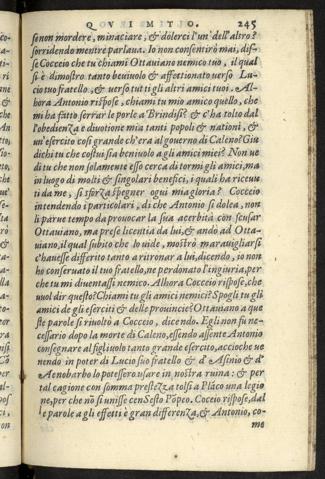 QVINTO. 245
senon mordere, minaciare, & dolerci l'un' dell'altro?
sorridendo mentre parlaua. Io non consentirò mai, dis-
se Cocceio che tu chiami Ottauiano nemico tuo, il qual
si è dimostro tanto beniuolo & affettionato uerso Lu-
cio tuo fratello, & uerso tutti gli altri amici tuoi. Al-
hora Antonio rispose, chiami tu mio amico quello, che
mi ha fatto serrar le porte a Brindisi? & c'ha tolto dal
l'obedienza e diuotione mia tanti popoli & nationi, &
un'esercito cosi grande ch'era al gouerno di Caleno? Giu
dichi tu che costui sia beniuolo a gli amici miei? Non ue
di tu che non solamente esso cerca di tormi gli amici, ma
in luogo di molti & singolari benefici, i quali ha riceuu
ti da me, si sforza spegner ogni mia gloria? Cocceio
intendendo i particolari, di che Antonio si dolea, non
li parue tempo da prouocar la sua acerbità con scusar
Ottauiano, ma prese licentia da lui, & andò ad Otta-
uiano, il qual subito che lo uide, mostrò marauigliarsi
c'hauesse differito tanto a ritornar a lui, dicendo, io non
ho conseruato il tuo fratello, ne perdonato l'ingiuria, per
che tu mi diuentassi nemico. Alhora Cocceio rispose, che
uuol dir questo? Chiami tu gli amici nemici? Spogli tu gli
amici de gli eserciti & delle prouincie? Ottauiano a que
ste parole si riuoltò a Cocceio, dicendo. Egli non fu ne-
cessario dopo la morte di Caleno, essendo assente Antonio
consegnare al figliuolo tanto grande esercito, accioche ue
nendo in poter di Lucio suo fratello & d'Asinio & d'
Aenobarbo lo potessero usare in nostra ruina: & per
tal cagione con somma prestezza tolsi a Plãco una legio
ne, per che nõ si unisse con Sesto Põpeo. Coceio rispose, dal
le parole a gli effetti è gran differenza, & Antonio, co-
me